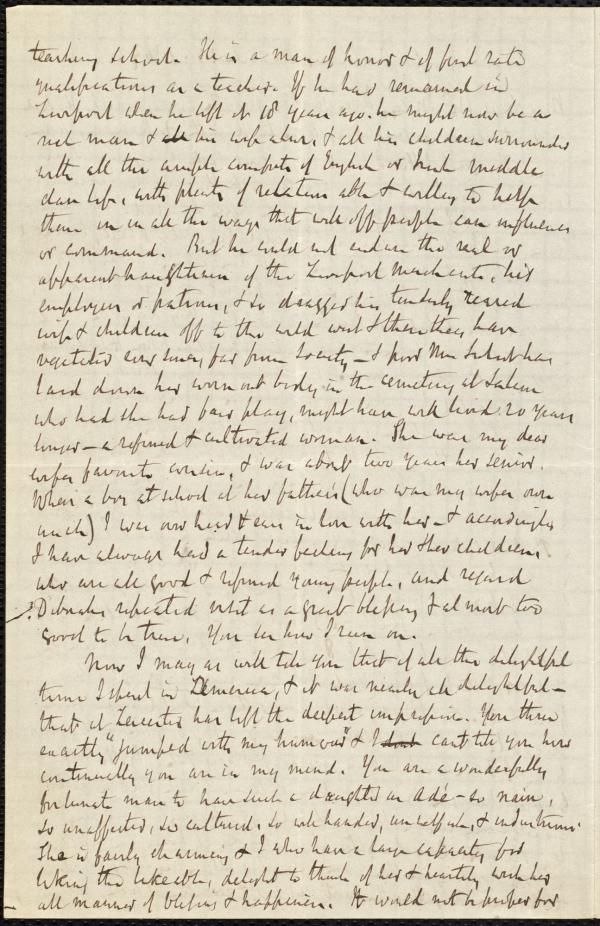 teaching school. He is a man of honor & of first rate
qualifications as a teacher. If he had remained in
Liverpool when he left it 18 years ago, he might now be a
rich man & his wife alive, & all his children surrounded
with all the ample comforts of English or Irish middle
class life, with plenty of relations able & willing to help
them on in all the ways that well off people can influence
or command. But he could not endure the real or
apparent haughtiness of the Liverpool merchants, his
employers or patrons, & so dragged his tenderly reared
wife & children off to the wild west & there they have
vegetated ever since, far from Society — & poor Mrs has
laid down her worn out body in the cemetery at Salem
who had she had fair play, might have well lived 20 years
longer — a refined & cultivated woman. She was my dear
wife's favorite cousin, & was about two years her senior.
When a boy at school at her father's (who was my wife's own
uncle) I was over head & ears in love with her — & accordingly
I have always had a tender feeling for her & her children,
who are all good & refined young people, and regard
Deborah's repeated visit as a great blessing & almost too
good to be true. You see how I run on.
Now I may as well tell you that of all the delightful
time I spent in America, & it was nearly all delightful —
that at Leicester has left the deepest impression. You three
exactly "jumped with my humour" & I can't tell you how
continually you are in my mind. You are a wonderfully
fortunate man to have such a daughter as Adé — so naive,
so unaffected, so cultured, so well handed, unselfish, & industrious.
She is fairly charming & I who have a large capacity for
liking the likeable, delight to think of her & heartily wish her
all manner of blessing & happiness. It would not be proper for